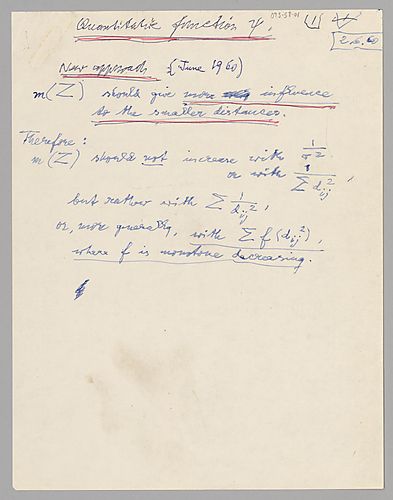 073-59-01
Quantitative function ψ. (1) ψ
2.6.60
New approach (June 1960)
m(Z) should give more influence
to the smaller distances.
Therefore:
m(Z) should not increase with 1/σ²
or with 1/Σ d_ij²,
but rather with Σ 1/d_ij²,
or, more generally, with Σ f(d_ij²),
where f is monotone decreasing.